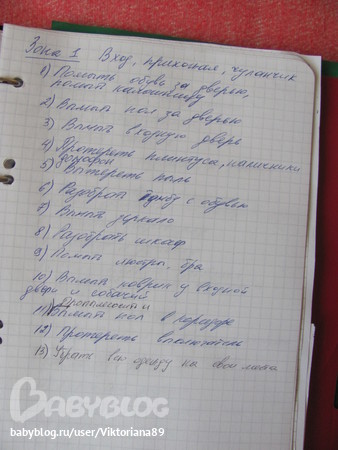 Зона 1 Вход, прихожая, чуланчик
1) Помыть обувь за дверью,
помыть
2) Вымыть пол за дверью
3) Вымыть входную дверь
4) Протереть плинтуса, наличники
домофон
5) Вытереть пыль
6) Разобрать тумбу с обувью
7) Вымыть зеркало
8) Разобрать шкаф
9) Помыть люстры, бра
10) Вымыть коврик у входной
двери и
11) Вымыть пол в коридоре
12) Протереть выключатель
13) Убрать всю одежду на свои места
BABYBLOG
babyblog.ru/user/Viktoriana89